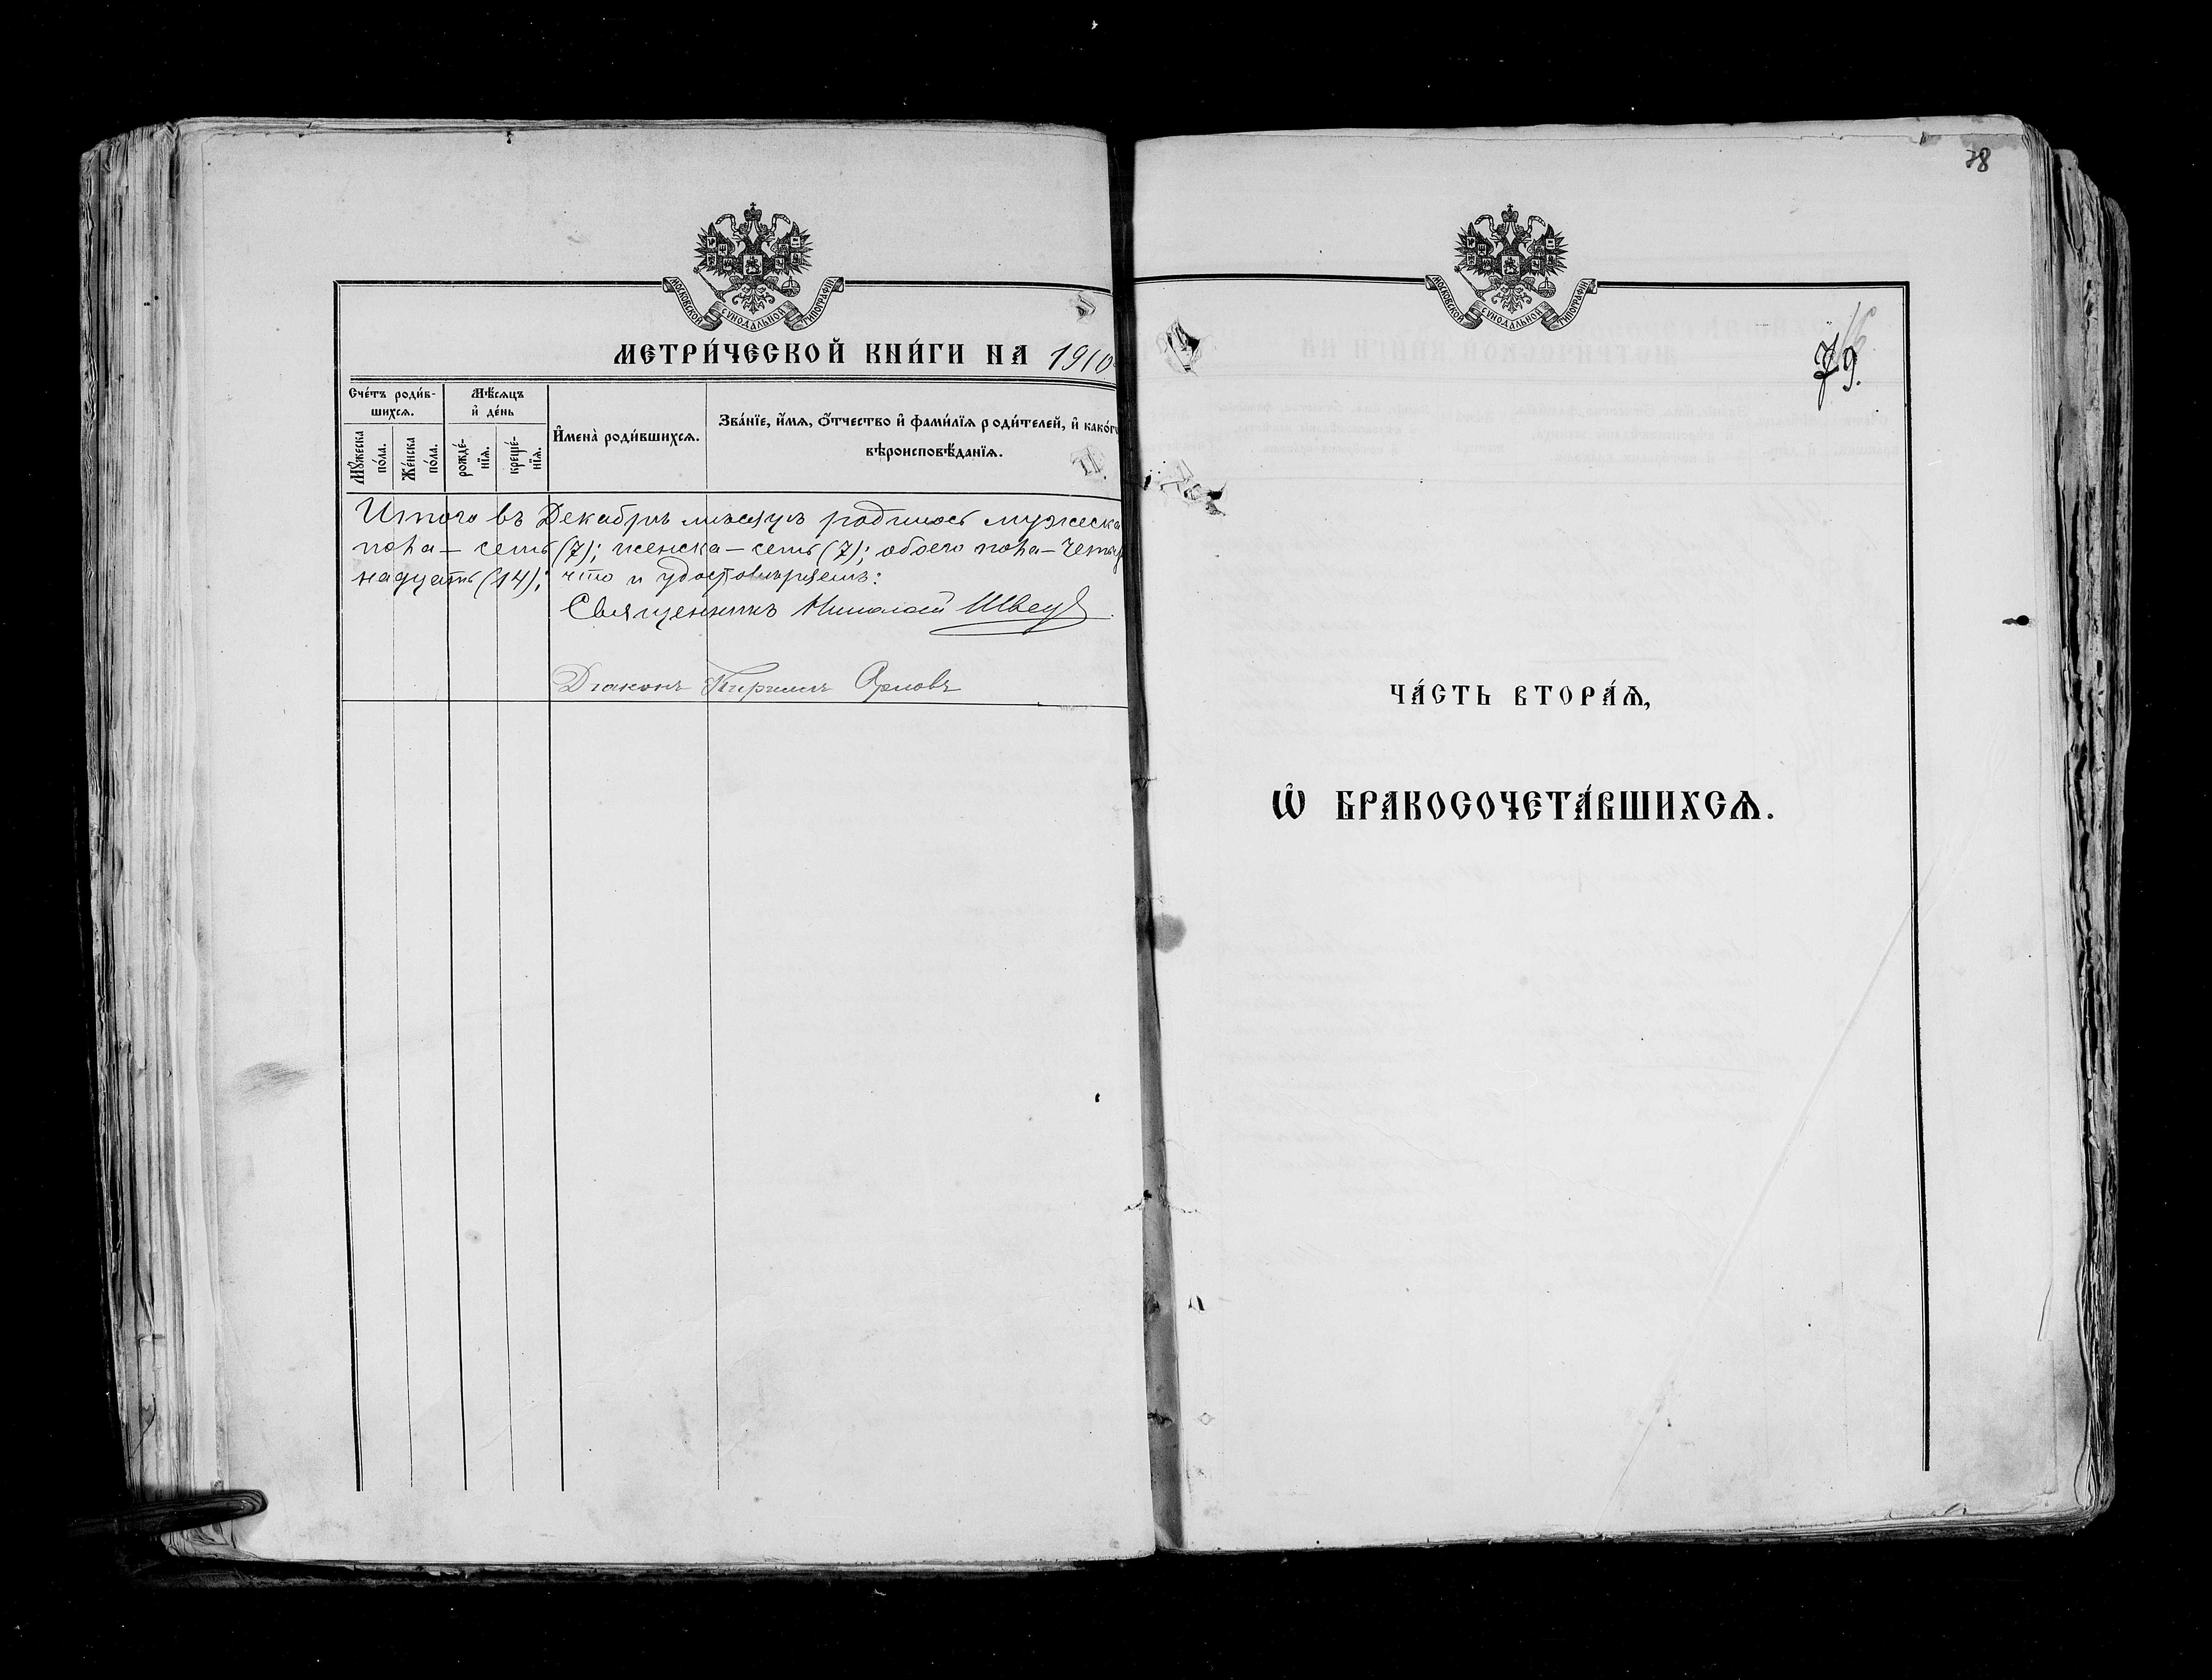 МОСКОВСКОЙ СУНОДАЛЬНОЙ ТИПОГРАФІИ
МЕТРИ́ЧЕСКОЙ КНИ́ГИ НА 1910
Сче́тъ роди́в-
шихсѧ.
Мѣ́сѧцъ
и҆ де́нь
И҆мена̀ роди́вшихсѧ.
Зва́нїе, и҆́мѧ, ѻ҆́тчество и҆ фами́лїѧ роди́телей, и҆ како́гѡ
вѣроисповѣ́данїѧ.
Мꙋ́жеска
по́ла.
Же́нска
по́ла.
рожде́-
нїѧ.
креще́-
нїѧ.
Итого въ Декабрѣ мѣсяцѣ родилось мужеска
пола — семь (7); женска — семь (7); обоего пола — четыр
надцать (14); что и удостовѣряемъ:
Священникъ Николай Швец
Діаконъ Кириллъ Орловъ
78
МОСКОВСКОЙ СУНОДАЛЬНОЙ ТИПОГРАФІИ
79.
ЧА́СТЬ ВТОРА́Ѧ,
Ѡ҆ БРАКОСОЧЕТА́ВШИХСѦ.